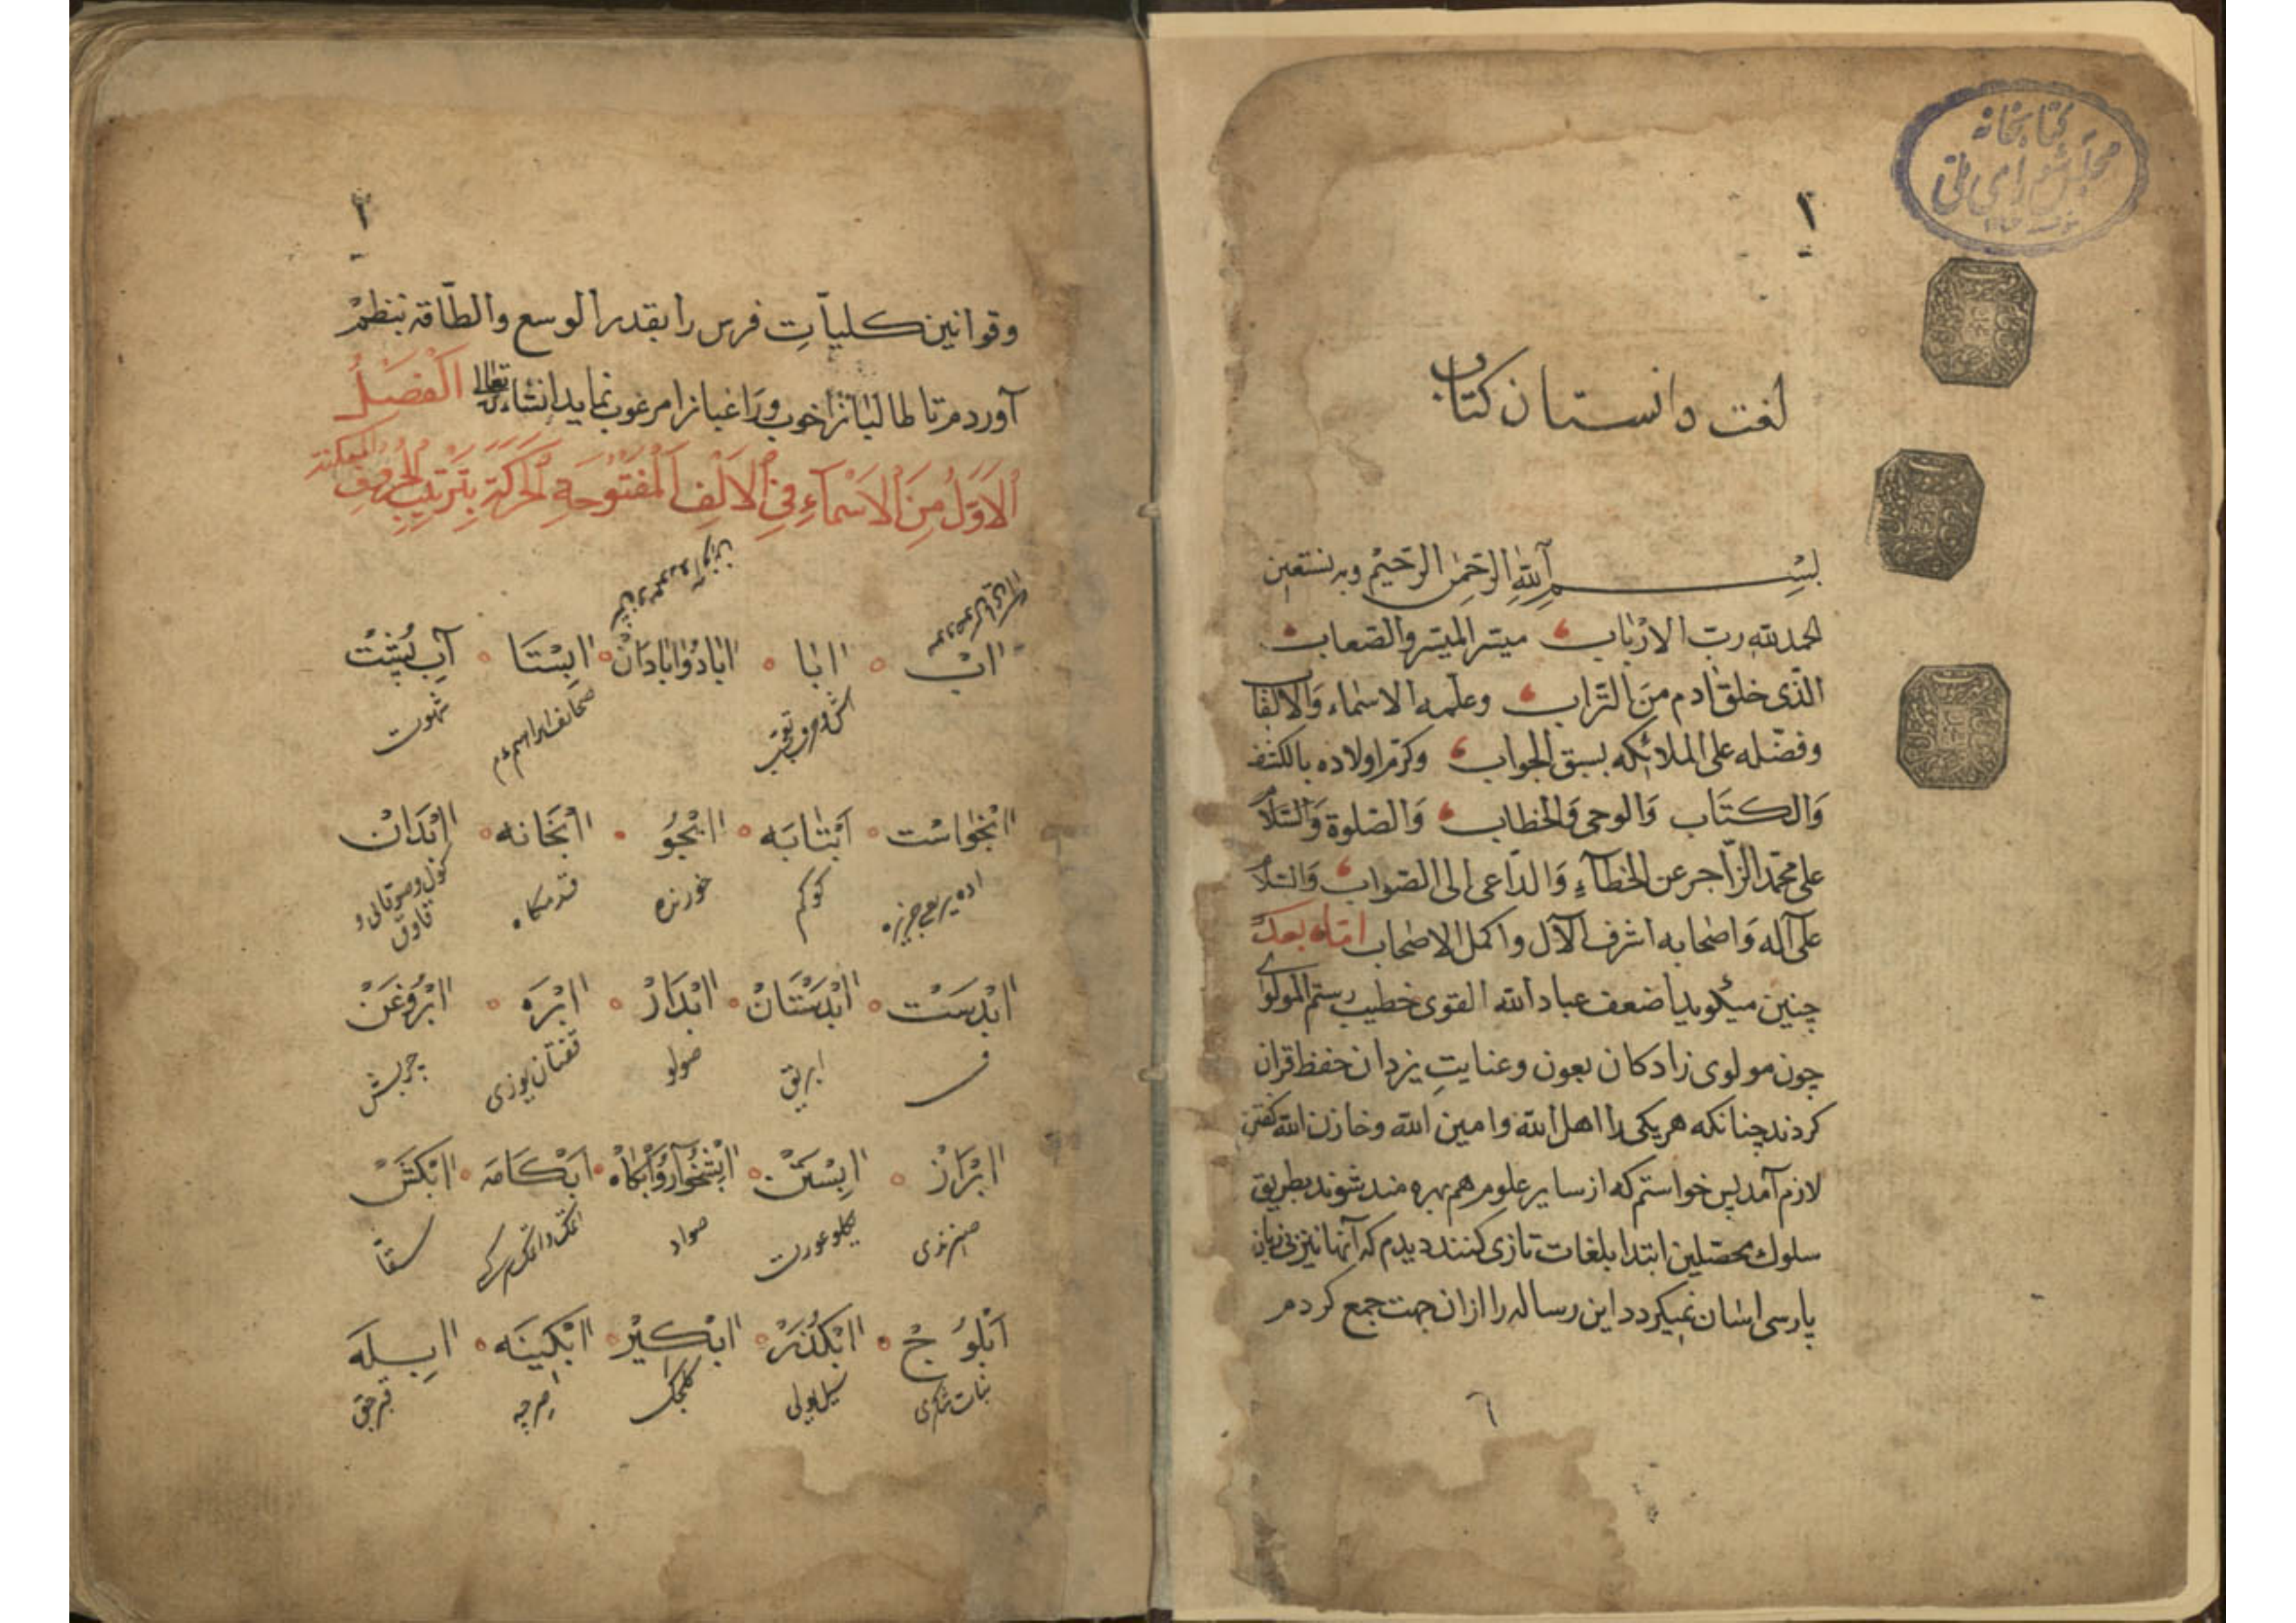 کتابخانه
مجلس شورای ملی
۲
لغت دانستان کتاب
بسم الله الرحمن الرحیم وبه نستعین
الحمدلله رب الارباب میسر المیسر والصعاب
الذی خلق ادم من التراب وعلمه الاسماء والالقاب
وفضله علی الملائکه بسبق الجواب وکرم اولاده بالکشف
والکتاب والوحی والخطاب والصلوة والسلام
علی محمد الزاجر عن الخطآء والداعی الی الصواب والسلام
علی آله واصحابه اشرف الآل واکمل الاصحاب اما بعد
چنین میکوید اضعف عباد الله القوی خطیب رستم المولوی
چون مولوی زادکان بعون وعنایت یزدان حفظ قران
کردند چنانکه هر یکی را اهل الله وامین الله وخازن الله کفتن
لازم آمد پس خواستم که از سایر علوم هم بهره مند شوند بطریق
سلوک محصلین ابتدا بلغات تازی کنند دیدم که آنها نیز بی زبان
پارسی اسان نمیکردد این رساله را از ان جهت جمع کردم
وقوانین کلیات فرس را بقدر الوسع والطاقه بنظم
آوردم تا طالبانرا خوب وراغبانرا مرغوب نماید انشاء الله تعالی الفصل
الاول من الاسماء فی الالف المفتوحة الحرکة بترتیب الحروف
اب ابا اباد وابادان ابستا آب پشت
صحائف ابراهیم شهوت
ابخواست ابتابه ابجو ابخانه ابدان
کوکم خورنده قدمکاه
ابدست ابدستان ابدار ابره ابروغن
ابریق صولو قفتان یوزی چربش
ابراز ابستن ابشخوار وابکاه ابکامه ابکش
یکلو عورت صواد سقا
ابلوج ابکذر ابکیر ابکینه ابسله
نبات شکری سیل یولی صرچه